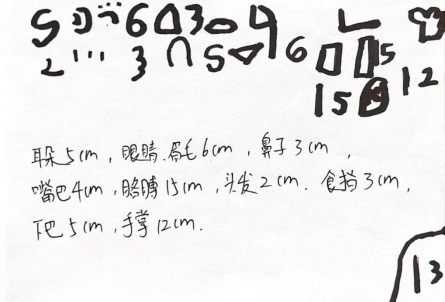 5 6 3 4
2 3 5 6 15
15 12
耳朵5cm，眼睛.眉毛6cm，鼻子3cm，
嘴巴4cm，胳膊15cm，头发2cm.食指3cm，
下巴5cm，手掌12cm.
13